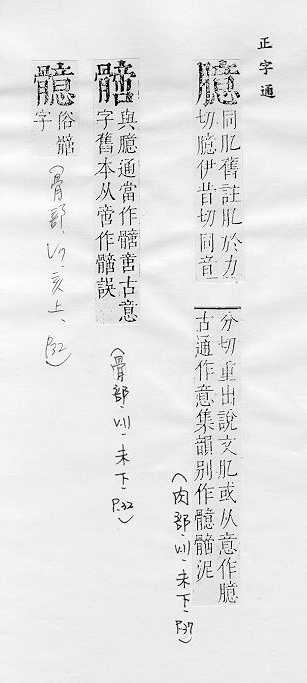 正字通
臆
同肊舊註肊於力
切臆伊昔切同音
分切重出說文肊或从意作臆
古通作意集韻別作泥
(肉部,VII,未下,P.37)
與臆通當作古意
字舊本从啻作誤
(骨部,VII,未下,P.32)
俗
字
(骨部,亥上,P.32)